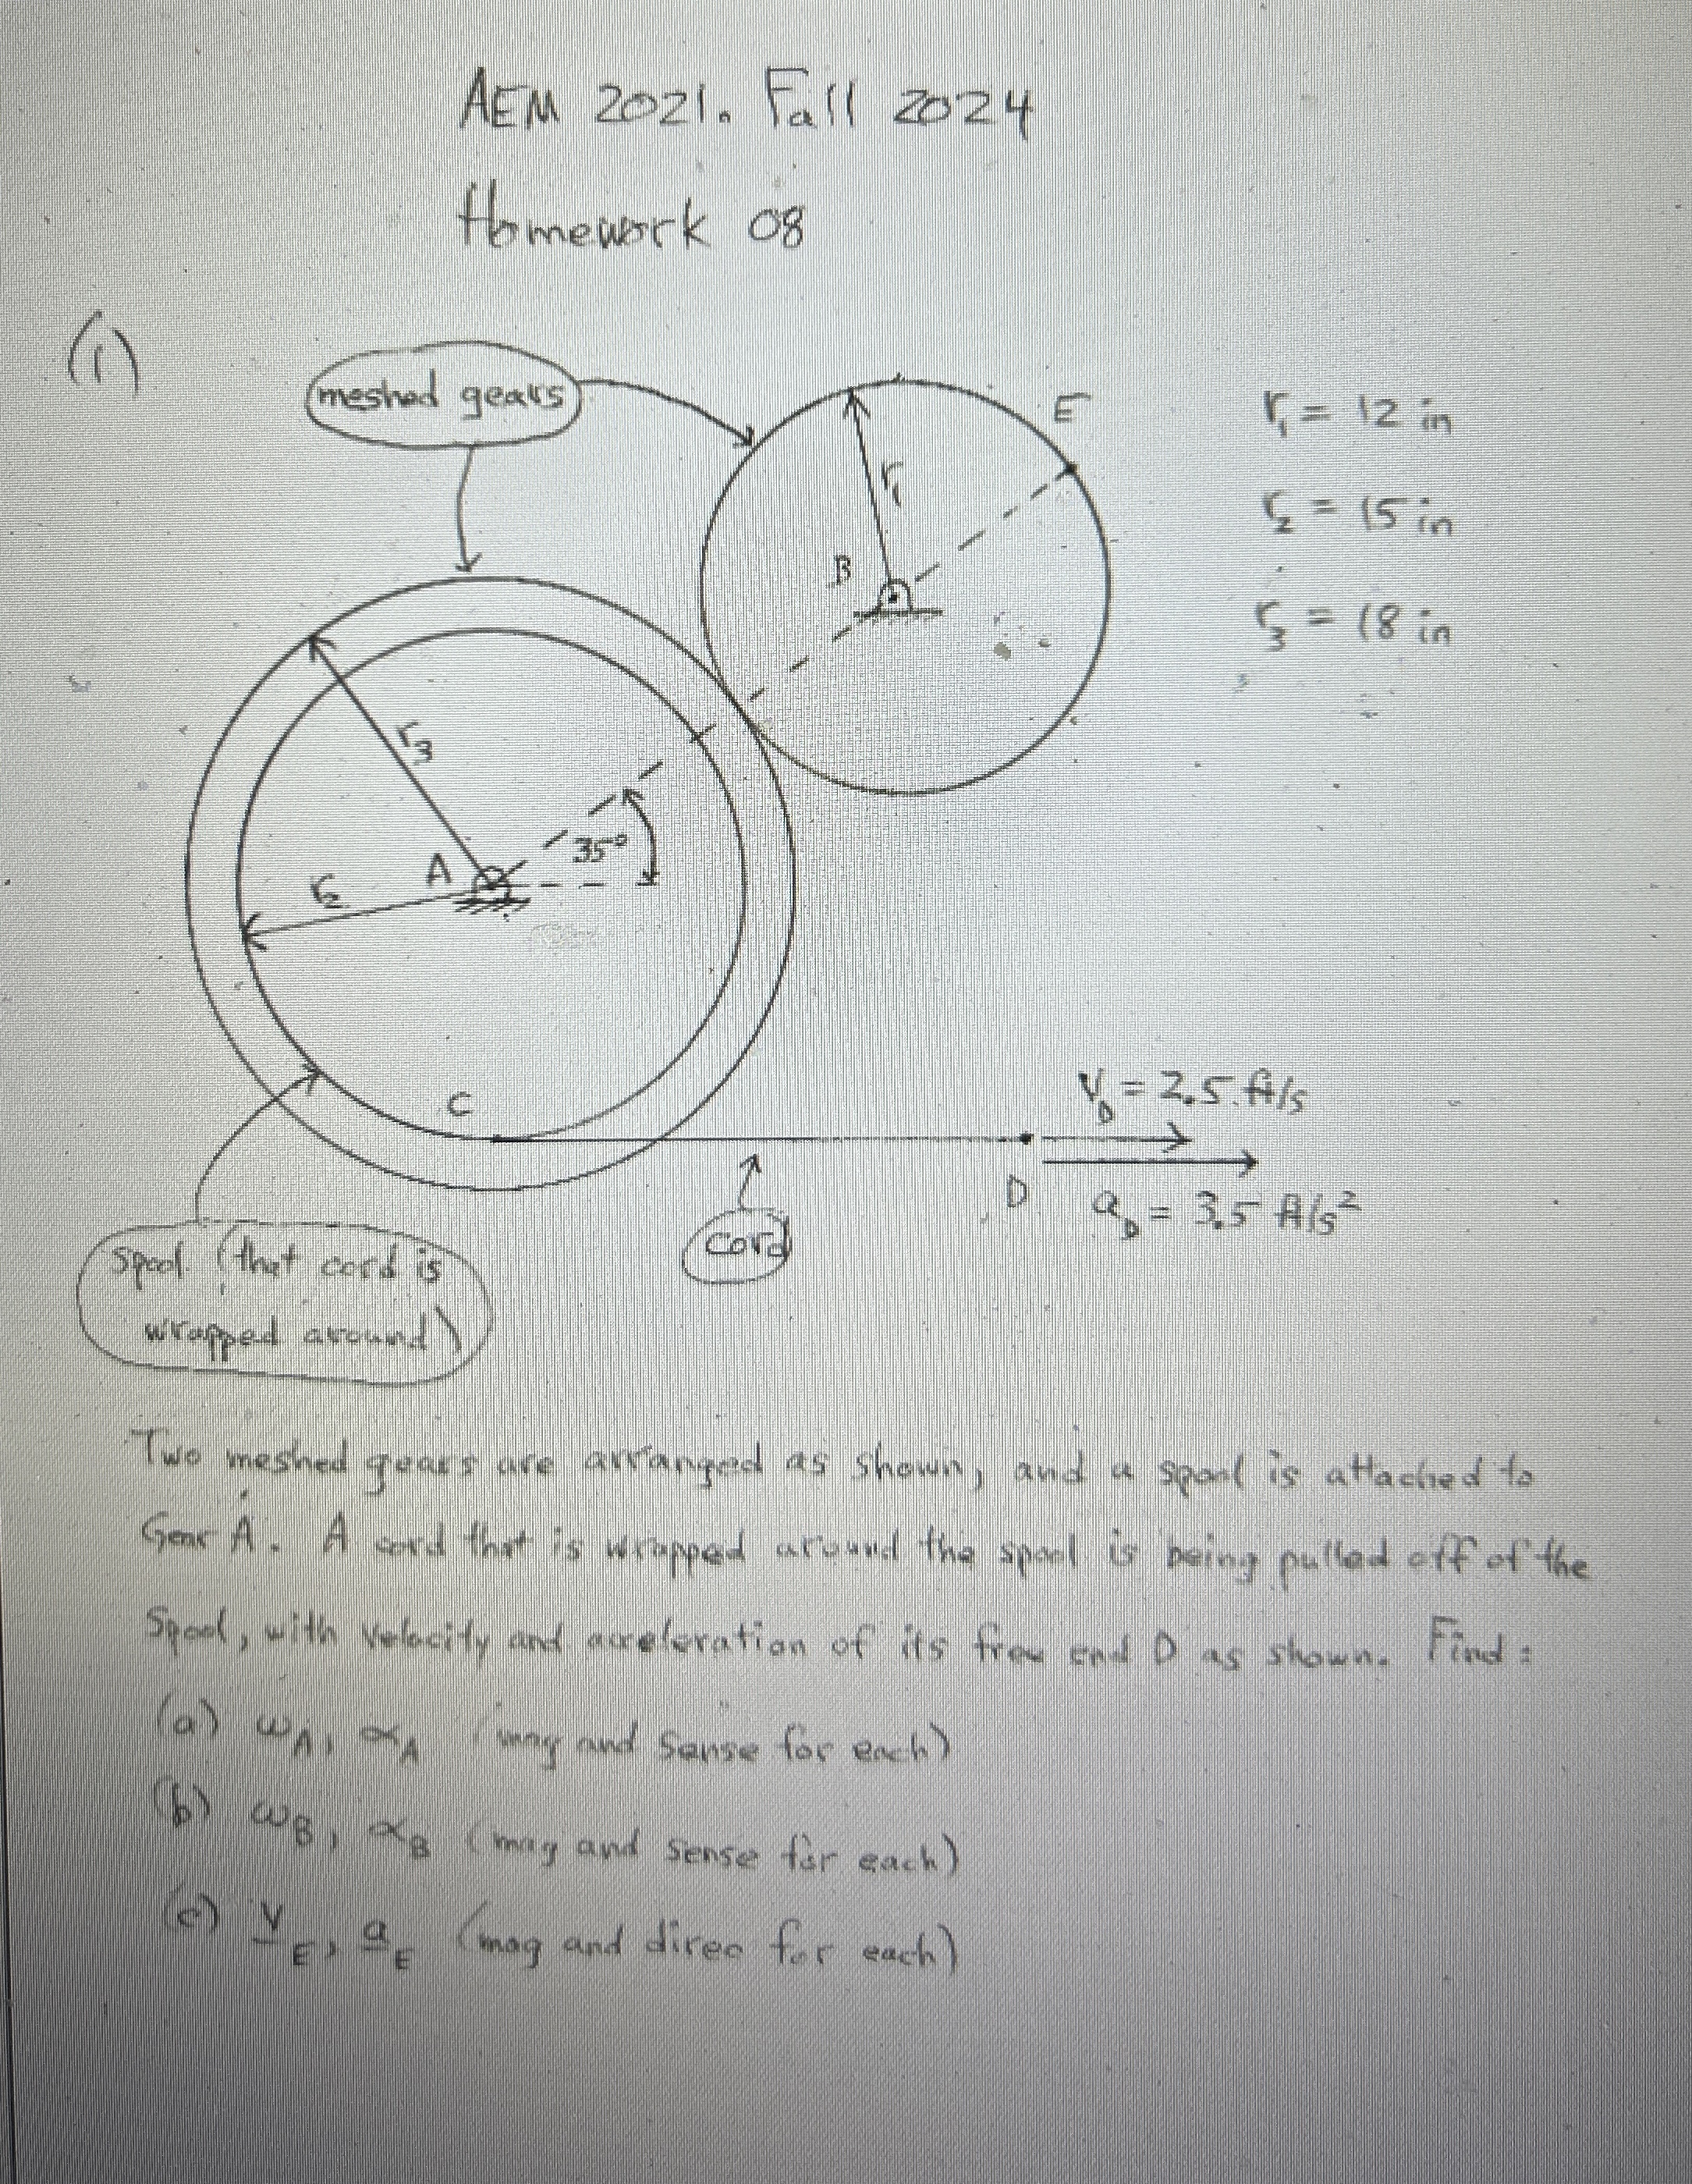 AEM 2021. Fall 2024
Homework 08
(1)
meshed gears
E
r₁ = 12 in
r₁
r₂ = 15 in
B
r₃ = 18 in
r₃
35°
A
r₂
C
V_D = 2.5 ft/s
D
a_D = 3.5 ft/s²
cord
spool (that cord is
wrapped around)
Two meshed gears are arranged as shown, and a spool is attached to
Gear A. A cord that is wrapped around the spool is being pulled off of the
Spool, with velocity and acceleration of its free end D as shown. Find:
(a) ω_A, α_A (mag and sense for each)
(b) ω_B, α_B (mag and sense for each)
(c) V_E, a_E (mag and direc for each)